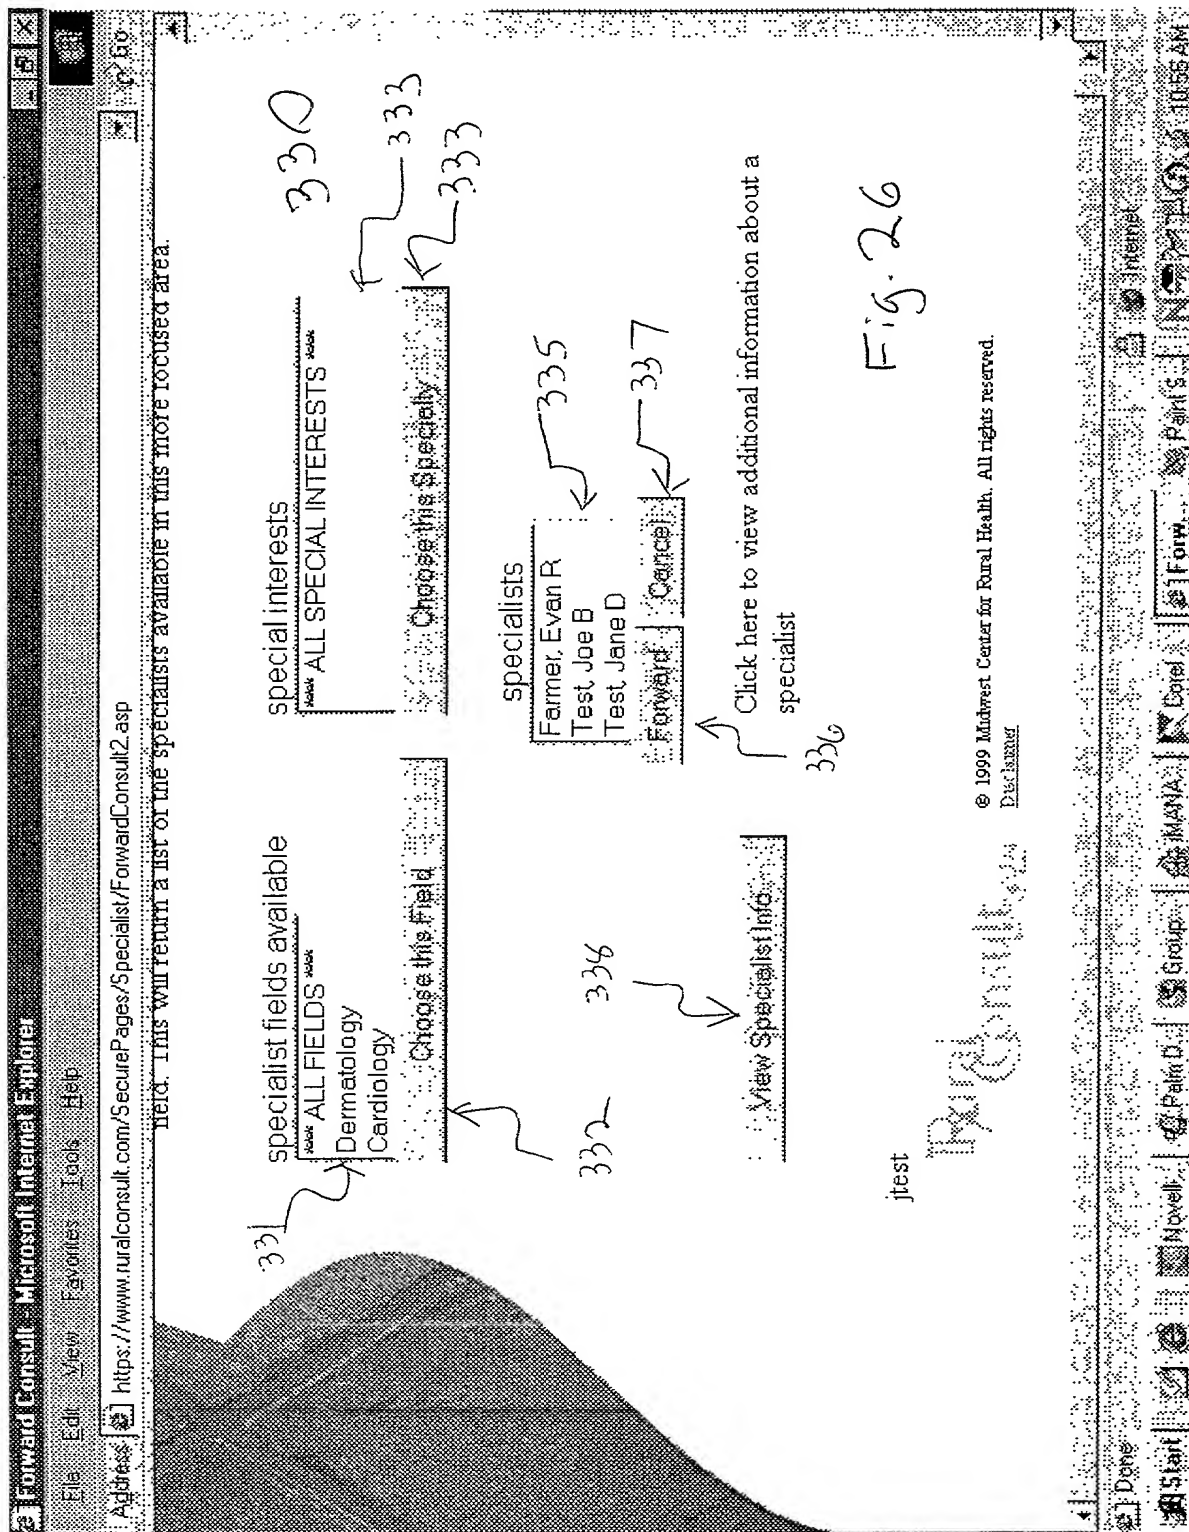 Forward Consult - Microsoft Internet Explorer
File Edit View Favorites Tools Help
Address https://www.ruralconsult.com/SecurePages/Specialist/ForwardConsult2.asp Go
field. This will return a list of the specialists available in this more focused area.
330
specialist fields available
*** ALL FIELDS ***
Dermatology
Cardiology
Choose this Field
331
332
special interests
*** ALL SPECIAL INTERESTS ***
Choose this Specialty
333
333
specialists
Farmer, Evan R
Test, Joe B
Test, Jane D
Forward Cancel
335
337
336
338
View Specialist Info
Click here to view additional information about a
specialist
Fig. 26
jtest
Rural Consult
© 1999 Midwest Center for Rural Health. All rights reserved.
Disclaimer
Done Internet
Start Novell... Palm D... Group... iMANA... Corel Forw... Paint S... 10:56 AM